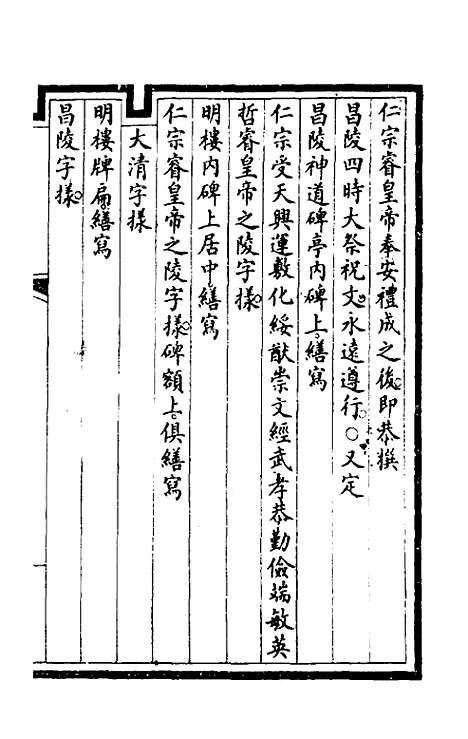 仁宗睿皇帝奉安禮成之後。即恭撰
昌陵四時大祭祝文。永遠遵行。○又定
昌陵神道碑亭內碑上。繕寫
仁宗受天興運敷化綏猷崇文經武孝恭勤儉端敏英
哲睿皇帝之陵字樣。
明樓內碑上居中繕寫
仁宗睿皇帝之陵字樣。碑額上。俱繕寫
大清字樣
明樓牌扁。繕寫
昌陵字樣。